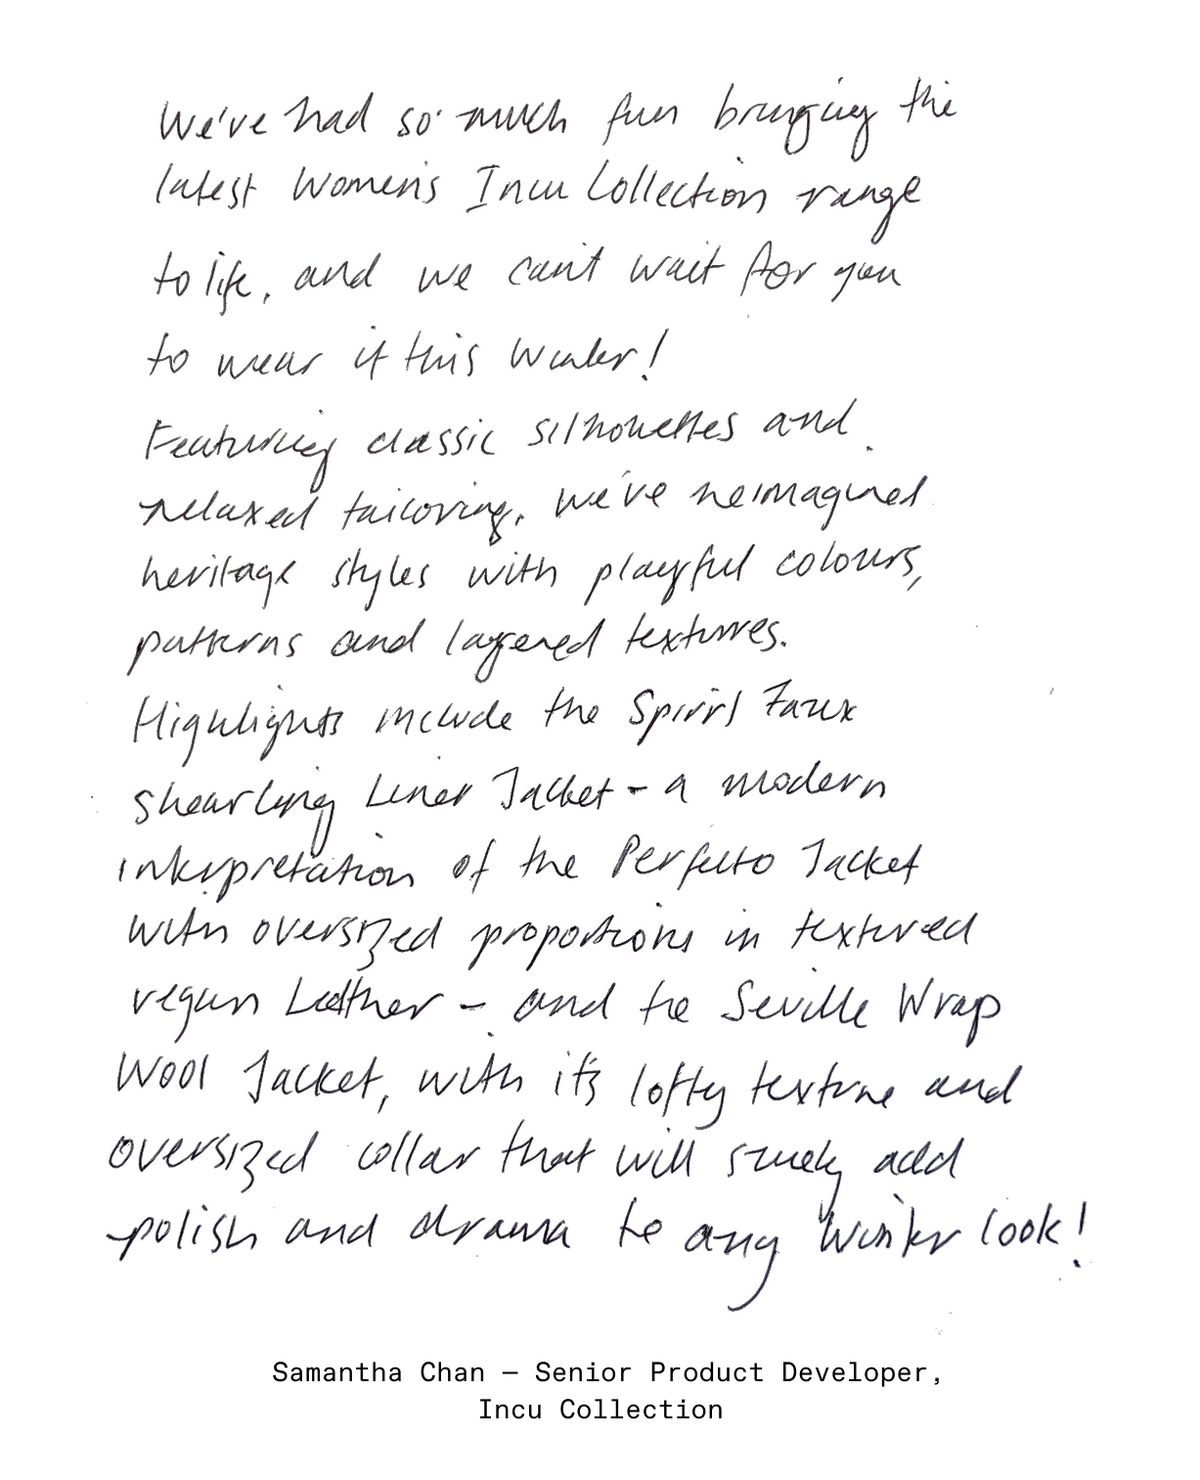 We've had so much fun bringing the
latest Women's Incu Collection range
to life, and we can't wait for you
to wear it this Winter!
Featuring classic silhouettes and
relaxed tailoring, we've reimagined
heritage styles with playful colours,
patterns and layered textures.
Highlights include the Spirit Faux
Shearling Liner Jacket - a modern
interpretation of the Perfecto Jacket
with oversized proportions in textured
vegan Leather - and the Seville Wrap
Wool Jacket, with it's lofty texture and
oversized collar that will surely add
polish and drama to any Winter look!
Samantha Chan — Senior Product Developer,
Incu Collection